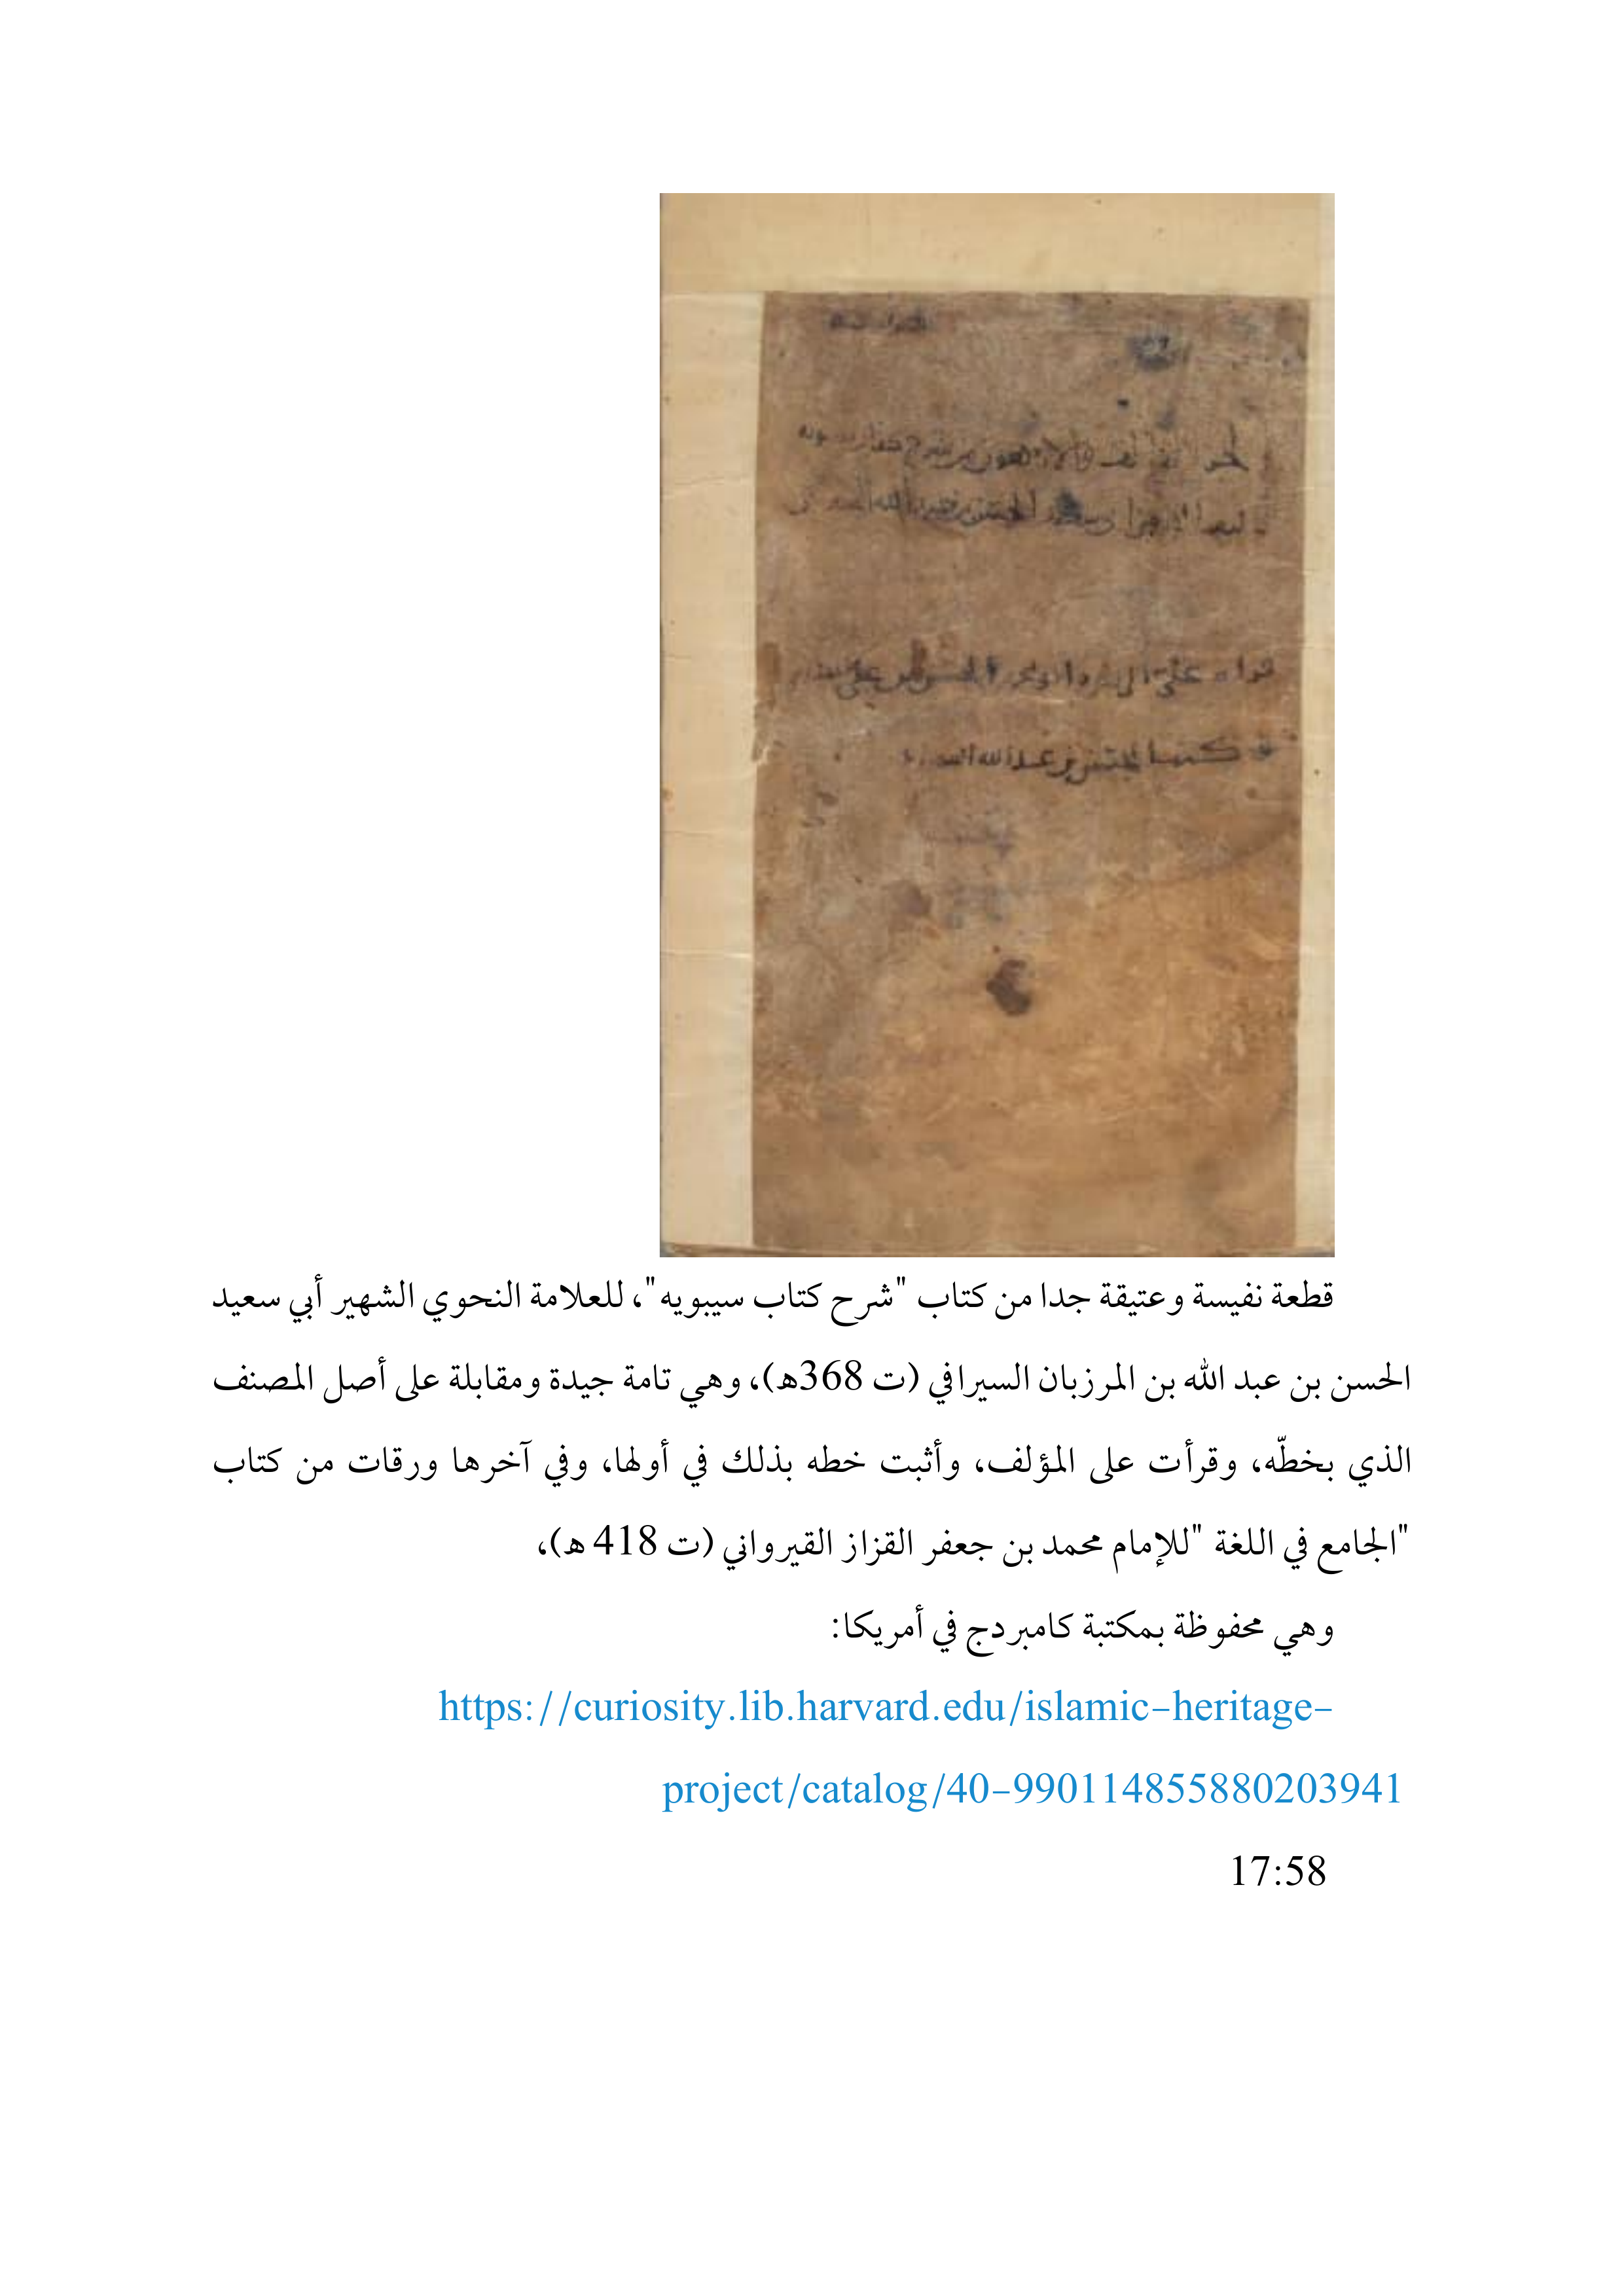 الحسن بن عبد الله
قطعة نفيسة وعتيقة جدا من كتاب "شرح كتاب سيبويه"، للعلامة النحوي الشهير أبي سعيد
الحسن بن عبد الله بن المرزبان السيرافي (ت 368ه)، وهي تامة جيدة ومقابلة على أصل المصنف
الذي بخطّه، وقرأت على المؤلف، وأثبت خطه بذلك في أولها، وفي آخرها ورقات من كتاب
"الجامع في اللغة "للإمام محمد بن جعفر القزاز القيرواني (ت 418 ه)،
وهي محفوظة بمكتبة كامبردج في أمريكا:
https://curiosity.lib.harvard.edu/islamic-heritage-
project/catalog/40-990114855880203941
17:58